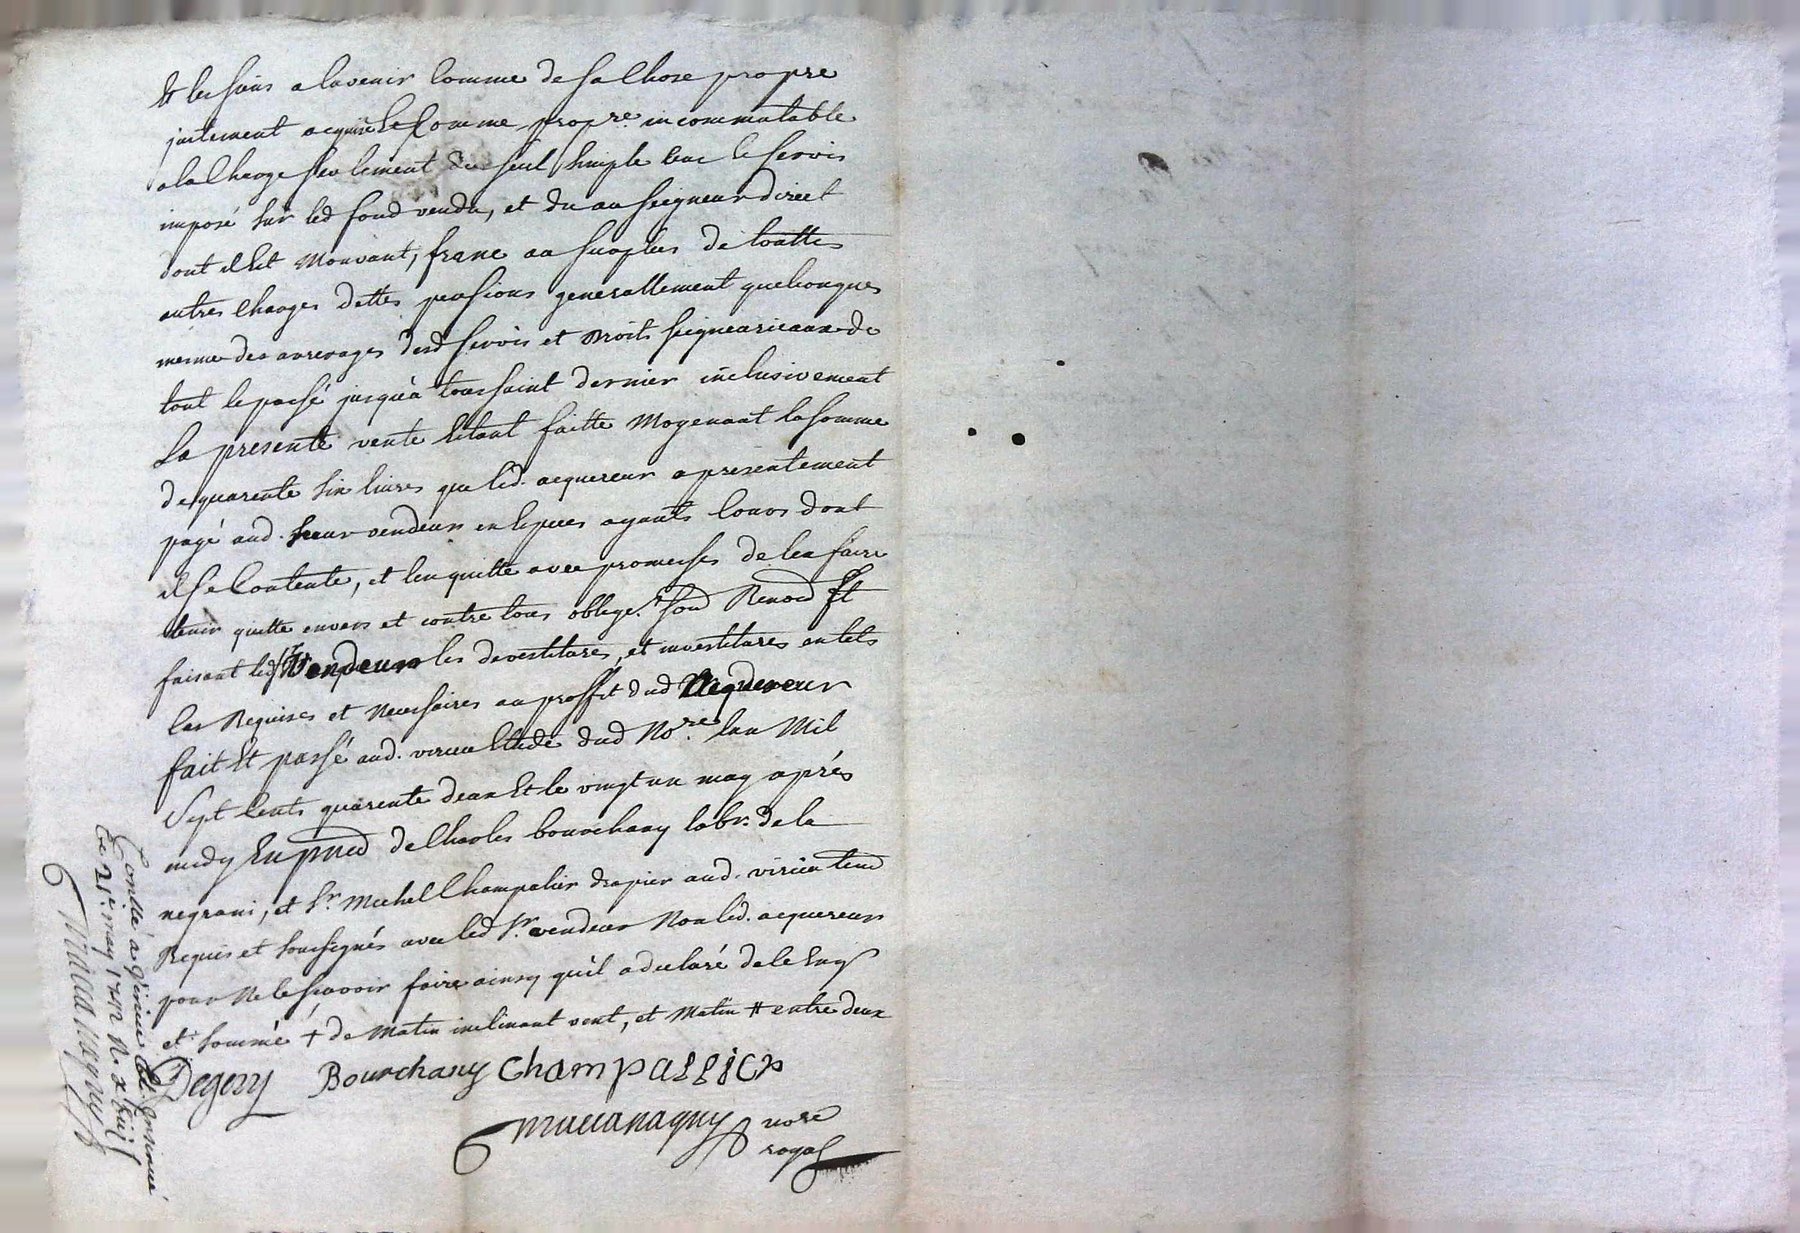 & les siens a lavenir Comme de sa Chose propre
justement acquise Comme propre incommutable
a la Charge seulement du seul simple cens & servis
imposé sur led fond vendu, et du au seigneur direct
dont il est Mouvant, franc au surplus de touttes
autres Charges dettes pensions generallement quelconques
mesme des arrerages desd servis et Droits seigneuriaux de
tout le passé jusqu'a toussaint dernier inclusivement
La presente vente Estant faitte Moyenant la somme
de quarente six livres que led. acquereur a presentement
payé aud. sieur vendeur en especes ayants Cours dont
il se Contente, et len quitte avec promesses de len faire
tenir quitte envers et contre tous oblige.on soud Renond Et
faisant led Sr Vendeur les devestitures, et investitures en tels
Cas Requises et Necessaires au proffit dud Acquereur
fait Et passé aud. virieu Etude dud No.re lan Mil
Sept Cents quarente deux Et le vingt un may aprés
midy En pnce de Charles bourchany labr. de la
negrani, et Sr. Michel Champalier drapier aud. virieu tem
Requis et soussignés avec led Sr. vendeur Non led. acquereur
pour Ne le scavoir faire ainsy qu'il a declaré de ce Enqs
et sommé + de Matin inclinant vent, et Matin # entre deux
Degery Bourchany Champallier
nore
royal
Contlé a
ce 21e may 1742 R.